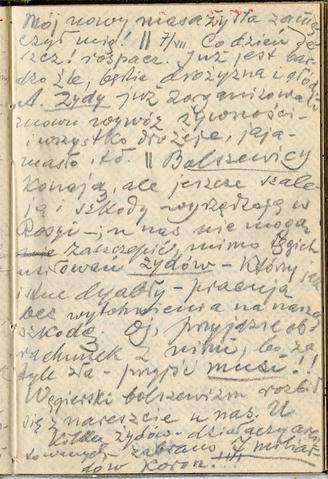 Mój nowy masażysta zamę
czył mię! || 7/VIII. Co dzień de
szcz! rozpacz. Już jest bar
dzo źle, będzie drożyzna i głód
A Żydy już zorganizowali
znowu wywóz żywności -
i wszystko drożeje, jaja-
masło itd. || Bolszewicy
konają, ale jeszcze szale
ją i szkody wyrządzają w
Rosyi - u nas nie mogą
zaszczepić, mimo tęgich
usiłowań żydów - którzy jak
istne dyabły - pracują
bez wytchnienia na naszą
szkodę. Oj, przyjdzie ob
rachunek z nimi, bo za
tyle zła - przyjść musi!!
Węgierski bolszewizm rozbił
się nareszcie u nas. U
kilku żydów - działaczy aresz
towanych zabrano 3 miliar
dów koron!!!